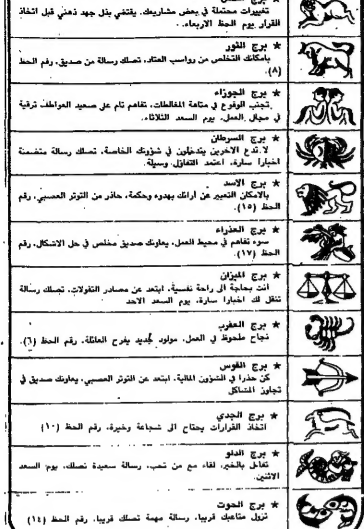 تغييرات محتملة في بعض مشاريعك. يقتضي بذل جهد ذهني قبل اتخاذ
القرار. يوم الحظ الاربعاء.
★ برج الثور
بامكانك التخلص من رواسب العناد، تصلك رسالة من صديق، رقم الحظ
(٨).
★ برج الجوزاء
تجنب الوقوع في متاهة المغالطات، تفاهم تام على صعيد العواطف، ترقية
في مجال العمل، يوم السعد الثلاثاء.
★ برج السرطان
لا تدع الاخرين يتدخلون في شؤونك الخاصة، تصلك رسالة متضمنة
اخبارا سارة، اعتمد التفاؤل وسيلة.
★ برج الاسد
بالامكان التعبير عن آرائك بهدوء وحكمة، حاذر من التوتر العصبي، رقم
الحظ (١٥).
★ برج العذراء
سوء تفاهم في محيط العمل، يعاونك صديق مخلص في حل الاشكال، رقم
الحظ (١٧).
★ برج الميزان
انت بحاجة الى راحة نفسية، ابتعد عن مصادر التقولات، تصلك رسالة
تنقل لك اخبارا سارة، يوم السعد الاحد
★ برج العقرب
نجاح ملحوظ في العمل، مولود جديد يفرح العائلة، رقم الحظ (٦).
★ برج القوس
كن حذرا في الشؤون المالية، ابتعد عن التوتر العصبي، يعاونك صديق في
تجاوز المشاكل
★ برج الجدي
اتخاذ القرارات يحتاج الى شجاعة وخبرة، رقم الحظ (١٠)
★ برج الدلو
تفاءل بالخير، لقاء مع من تحب، رسالة سعيدة تصلك، يوم السعد
الاثنين.
★ برج الحوت
تزول متاعبك قريبا، رسالة مهمة تصلك قريبا، رقم الحظ (١٤)